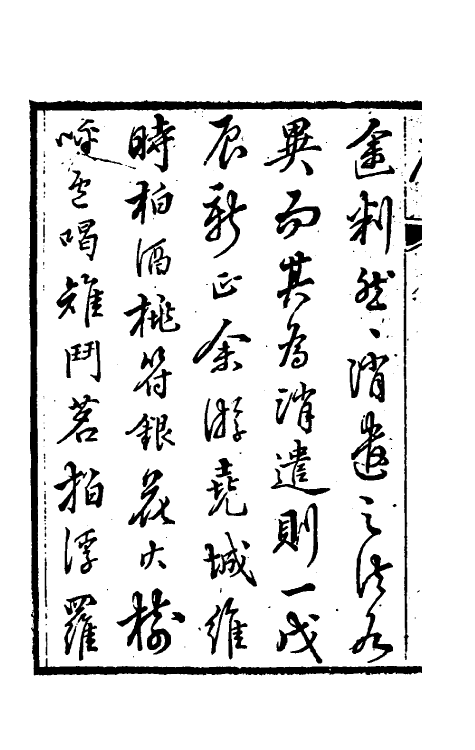 途判然、消遣之法各
異而其為消遣則一戊
辰新正余游堯城維
時柏酒桃符銀花火樹
呼盧喝雉鬥茗拍浮羅